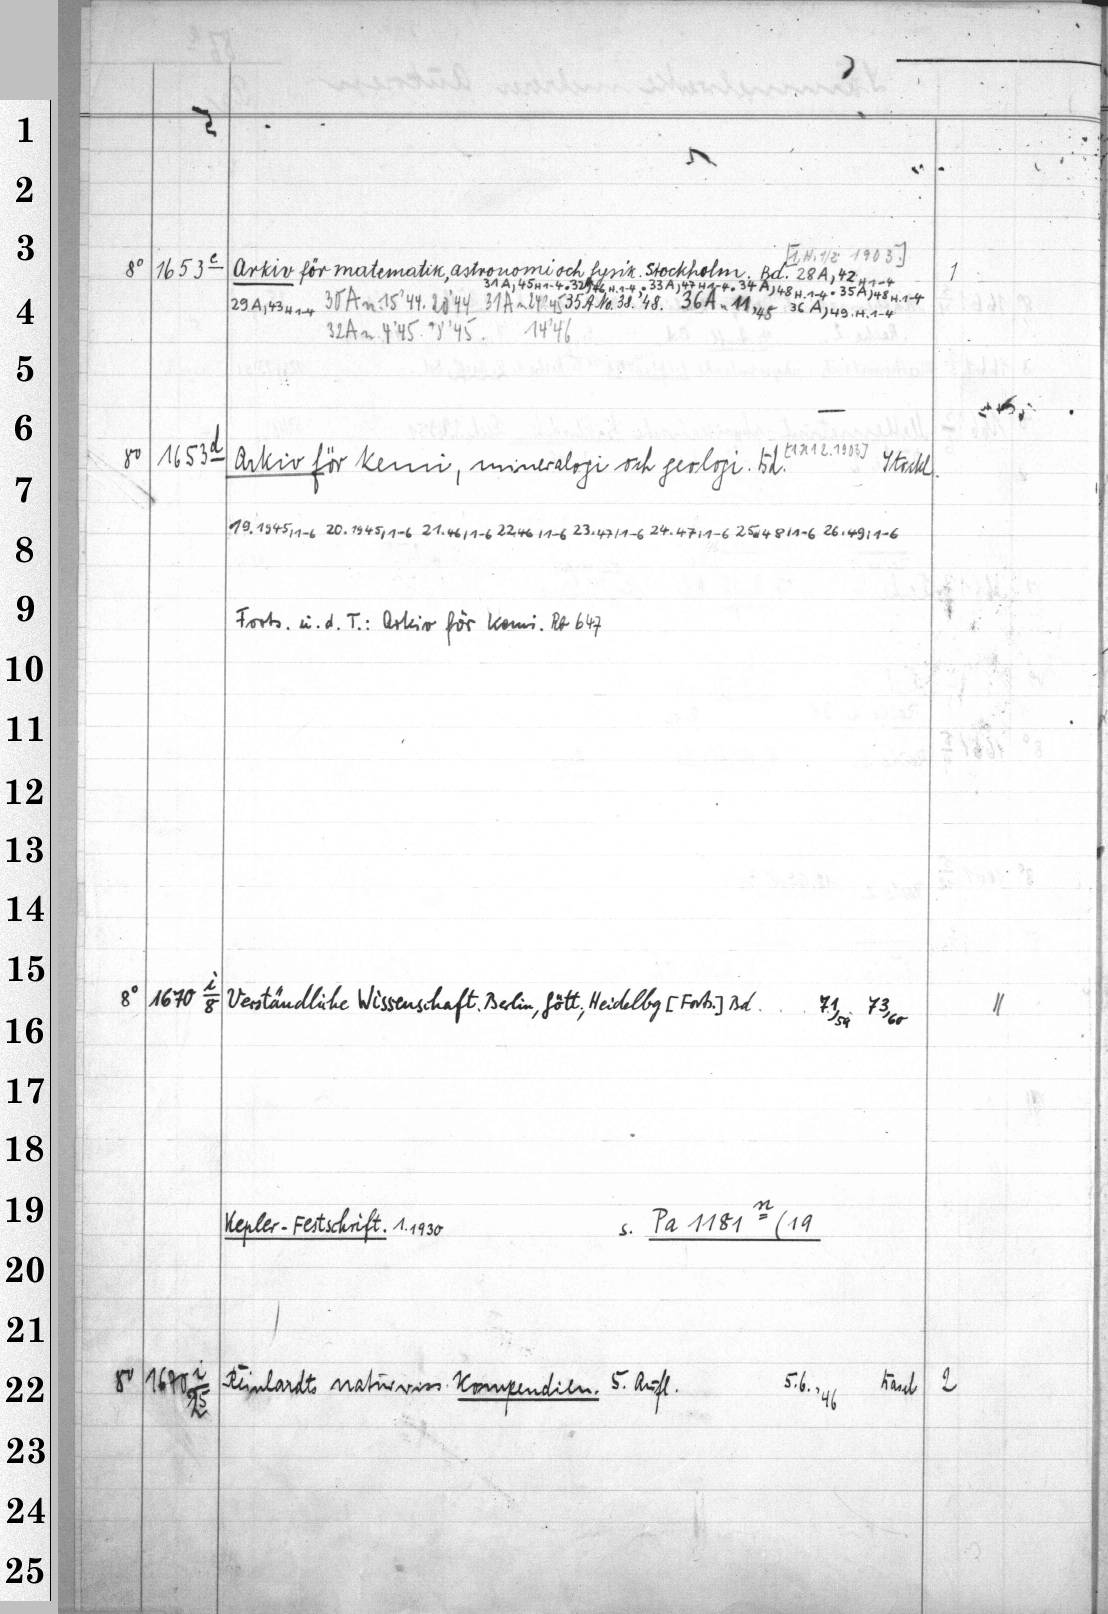 1
2
3
[1.H.1/2 1903.]
8° 1653c Arkiv för matematik, astronomi och fysik. Stockholm. Bd. 28A,42 H.1-4 1
31A,45 H.1-4. 32A,46 H.1-4. 33A,47 H.1-4. 34A,48 H.1-4. 35A,48 H.1-4
4
29A,43 H.1-4 30A n.15'44. 20'44 31A n.24'45 35A No.38.'48. 36A n 11,45 36A,49.H.1-4
32A n. 4'45. "8'45. 14'46
5
6
8° 1653d Arkiv för kemi, mineralogi och geologi. Bd. [1 H 1 2.1903] Stockh.
7
19.1945,1-6 20.1945,1-6 21.46,1-6 22.46,1-6 23.47,1-6 24.47,1-6 25.48,1-6 26.49,1-6
8
9
Forts. u. d. T.: Arkiv för kemi. Rb 647
10
11
12
13
14
15
8° 1670 i/8 Verständliche Wissenschaft. Berlin, Gött., Heidelbg [Forts.] Bd. . . 71,59. 73,60 11
16
17
18
19
Kepler-Festschrift. 1.1930 s. Pa 1181n (19
20
21
22
8° 1670 i/25 Reinhardts naturwiss. Kompendien. 5. Aufl. 5.6.,46 Basel 2
23
24
25